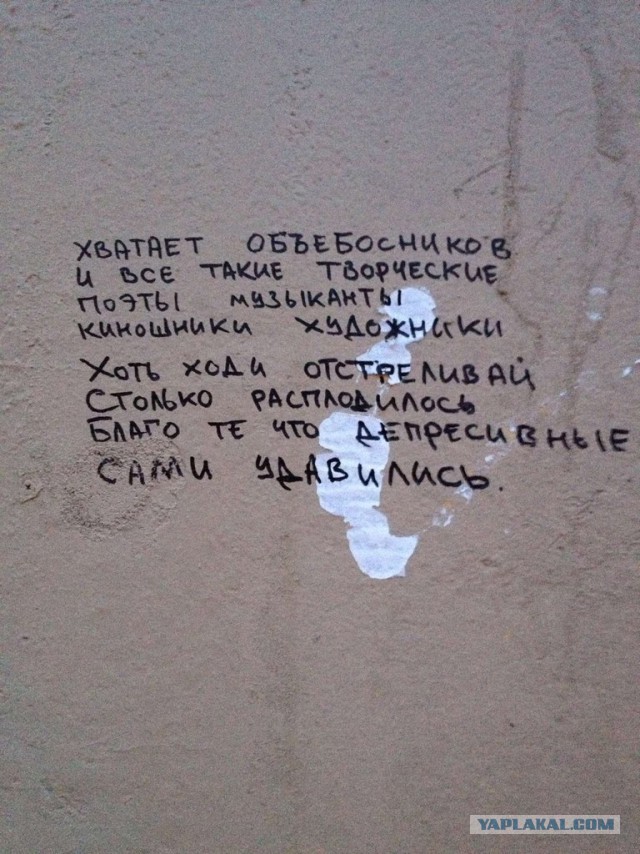 ХВАТАЕТ ОБЪЕБОСНИКОВ
И ВСЕ ТАКИЕ ТВОРЧЕСКИЕ
ПОЭТЫ МУЗЫКАНТЫ
КИНОШНИКИ ХУДОЖНИКИ
ХОТЬ ХОДИ ОТСТРЕЛИВАЙ
СТОЛЬКО РАСПЛОДИЛОСЬ
БЛАГО ТЕ ЧТО ДЕПРЕСИВНЫЕ
САМИ УДАВИЛИСЬ.
YAPLAKAL.COM